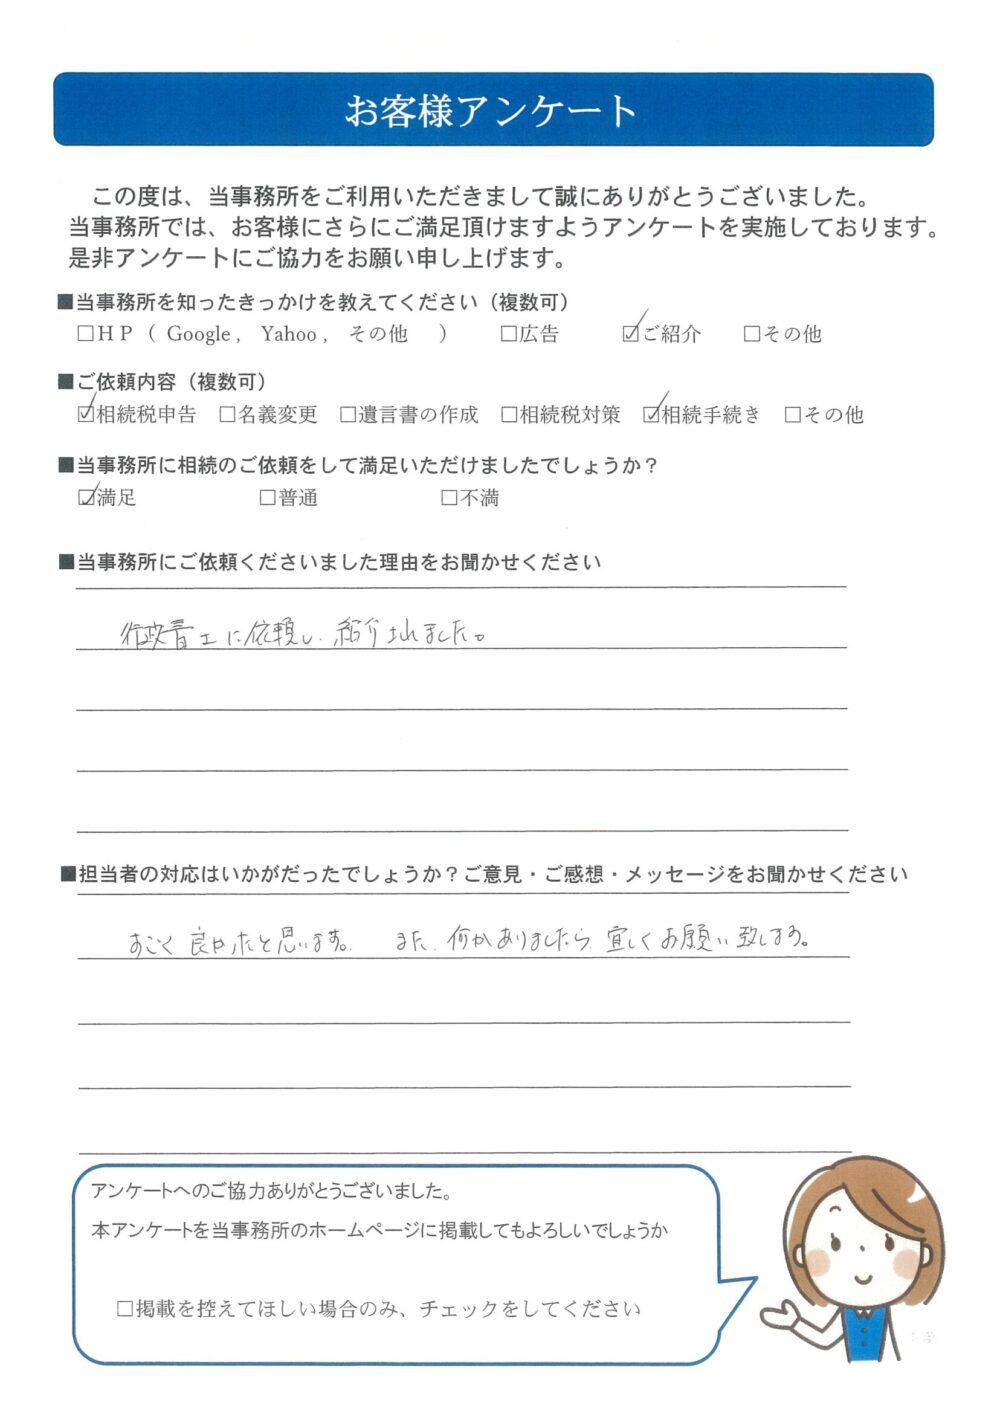 お客様アンケート
この度は、当事務所をご利用いただきまして誠にありがとうございました。
当事務所では、お客様にさらにご満足頂けますようアンケートを実施しております。
是非アンケートにご協力をお願い申し上げます。
■当事務所を知ったきっかけを教えてください（複数可）
□ＨＰ（ Google， Yahoo， その他 ） □広告 ☑ご紹介 □その他
■ご依頼内容（複数可）
☑相続税申告 □名義変更 □遺言書の作成 □相続税対策 ☑相続手続き □その他
■当事務所に相続のご依頼をして満足いただけましたでしょうか？
☑満足 □普通 □不満
■当事務所にご依頼くださいました理由をお聞かせください
行政書士に依頼し、紹介されました。
■担当者の対応はいかがだったでしょうか？ご意見・ご感想・メッセージをお聞かせください
すごく良かったと思います。 また、何かありましたら、宜しくお願い致します。
アンケートへのご協力ありがとうございました。
本アンケートを当事務所のホームページに掲載してもよろしいでしょうか
□掲載を控えてほしい場合のみ、チェックをしてください